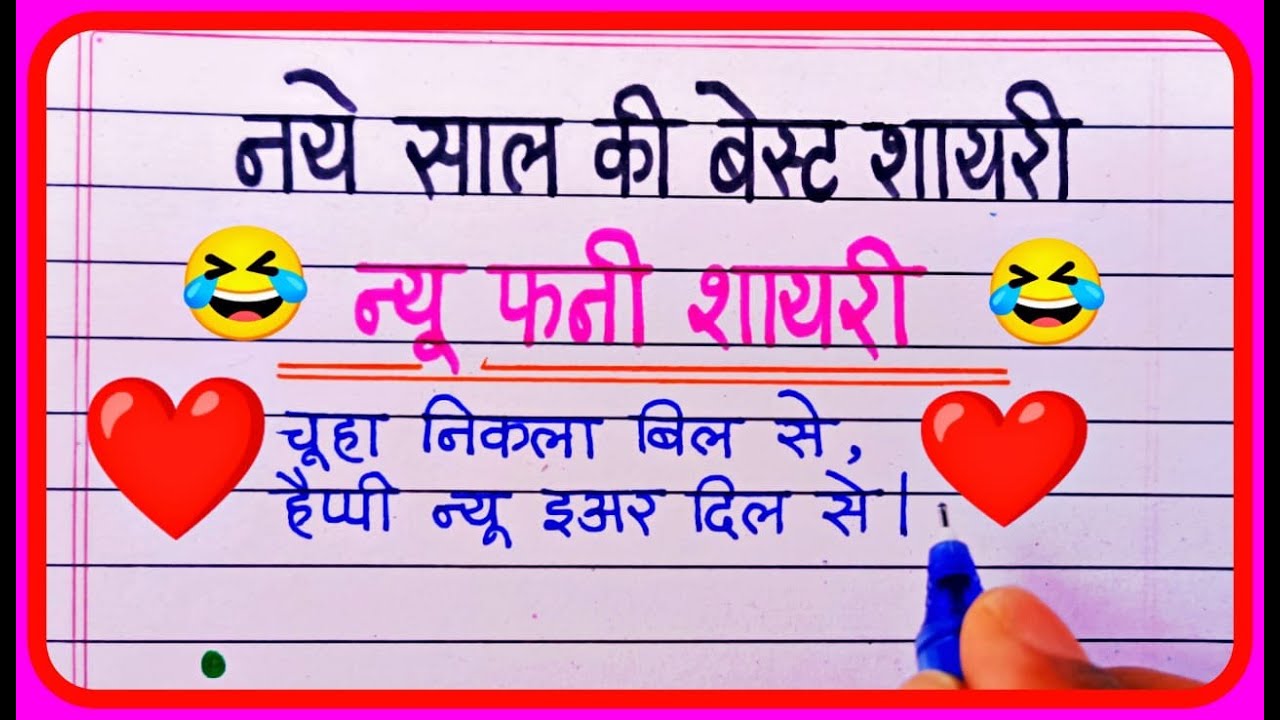 नये साल की बेस्ट शायरी
न्यू फनी शायरी
चूहा निकला बिल से,
हैप्पी न्यू इअर दिल से।